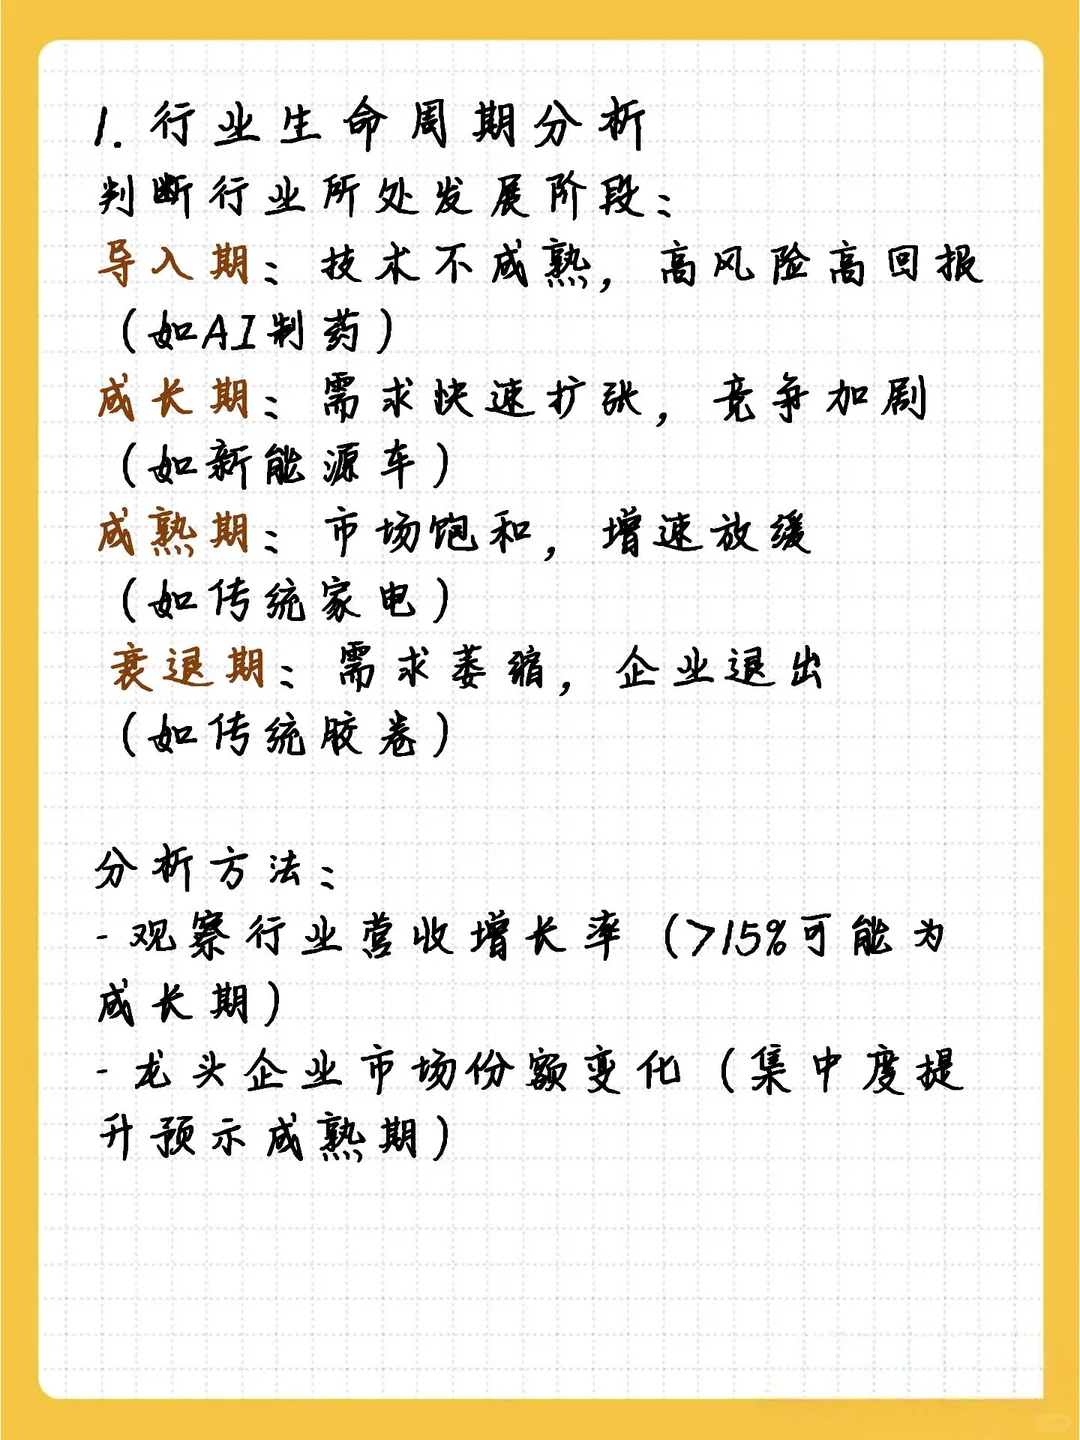 1. 行业生命周期分析
判断行业所处发展阶段：
导入期：技术不成熟，高风险高回报
（如AI制药）
成长期：需求快速扩张，竞争加剧
（如新能源车）
成熟期：市场饱和，增速放缓
（如传统家电）
衰退期：需求萎缩，企业退出
（如传统胶卷）
分析方法：
- 观察行业营收增长率（>15%可能为
成长期）
- 龙头企业市场份额变化（集中度提
升预示成熟期）